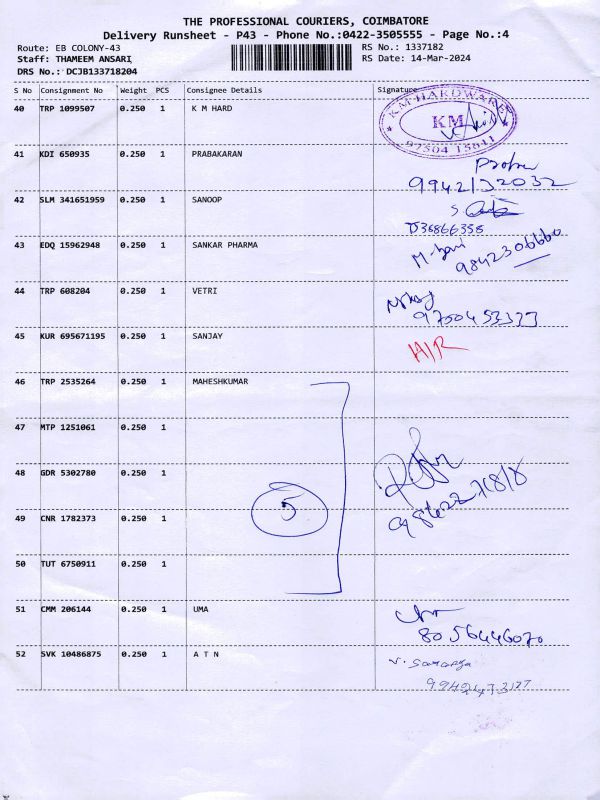 THE PROFESSIONAL COURIERS, COIMBATORE
Delivery Runsheet - P43 - Phone No.:0422-3505555 - Page No.:4
Route: EB COLONY-43 RS No.: 1337182
Staff: THAMEEM ANSARI RS Date: 14-Mar-2024
DRS No.: DCJB133718204
S No Consignment No Weight PCS Consignee Details Signature
40 TRP 1099507 0.250 1 K M HARD
KM HARDWARE
KM
97504 15011
41 KDI 650935 0.250 1 PRABAKARAN
42 SLM 341651959 0.250 1 SANOOP
43 EDQ 15962948 0.250 1 SANKAR PHARMA
9842306660
44 TRP 608204 0.250 1 VETRI
45 KUR 695671195 0.250 1 SANJAY
46 TRP 2535264 0.250 1 MAHESHKUMAR
47 MTP 1251061 0.250 1
48 GDR 5302780 0.250 1
5
49 CNR 1782373 0.250 1
50 TUT 6750911 0.250 1
51 CMM 206144 0.250 1 UMA
8056446070
52 SVK 10486875 0.250 1 A T N